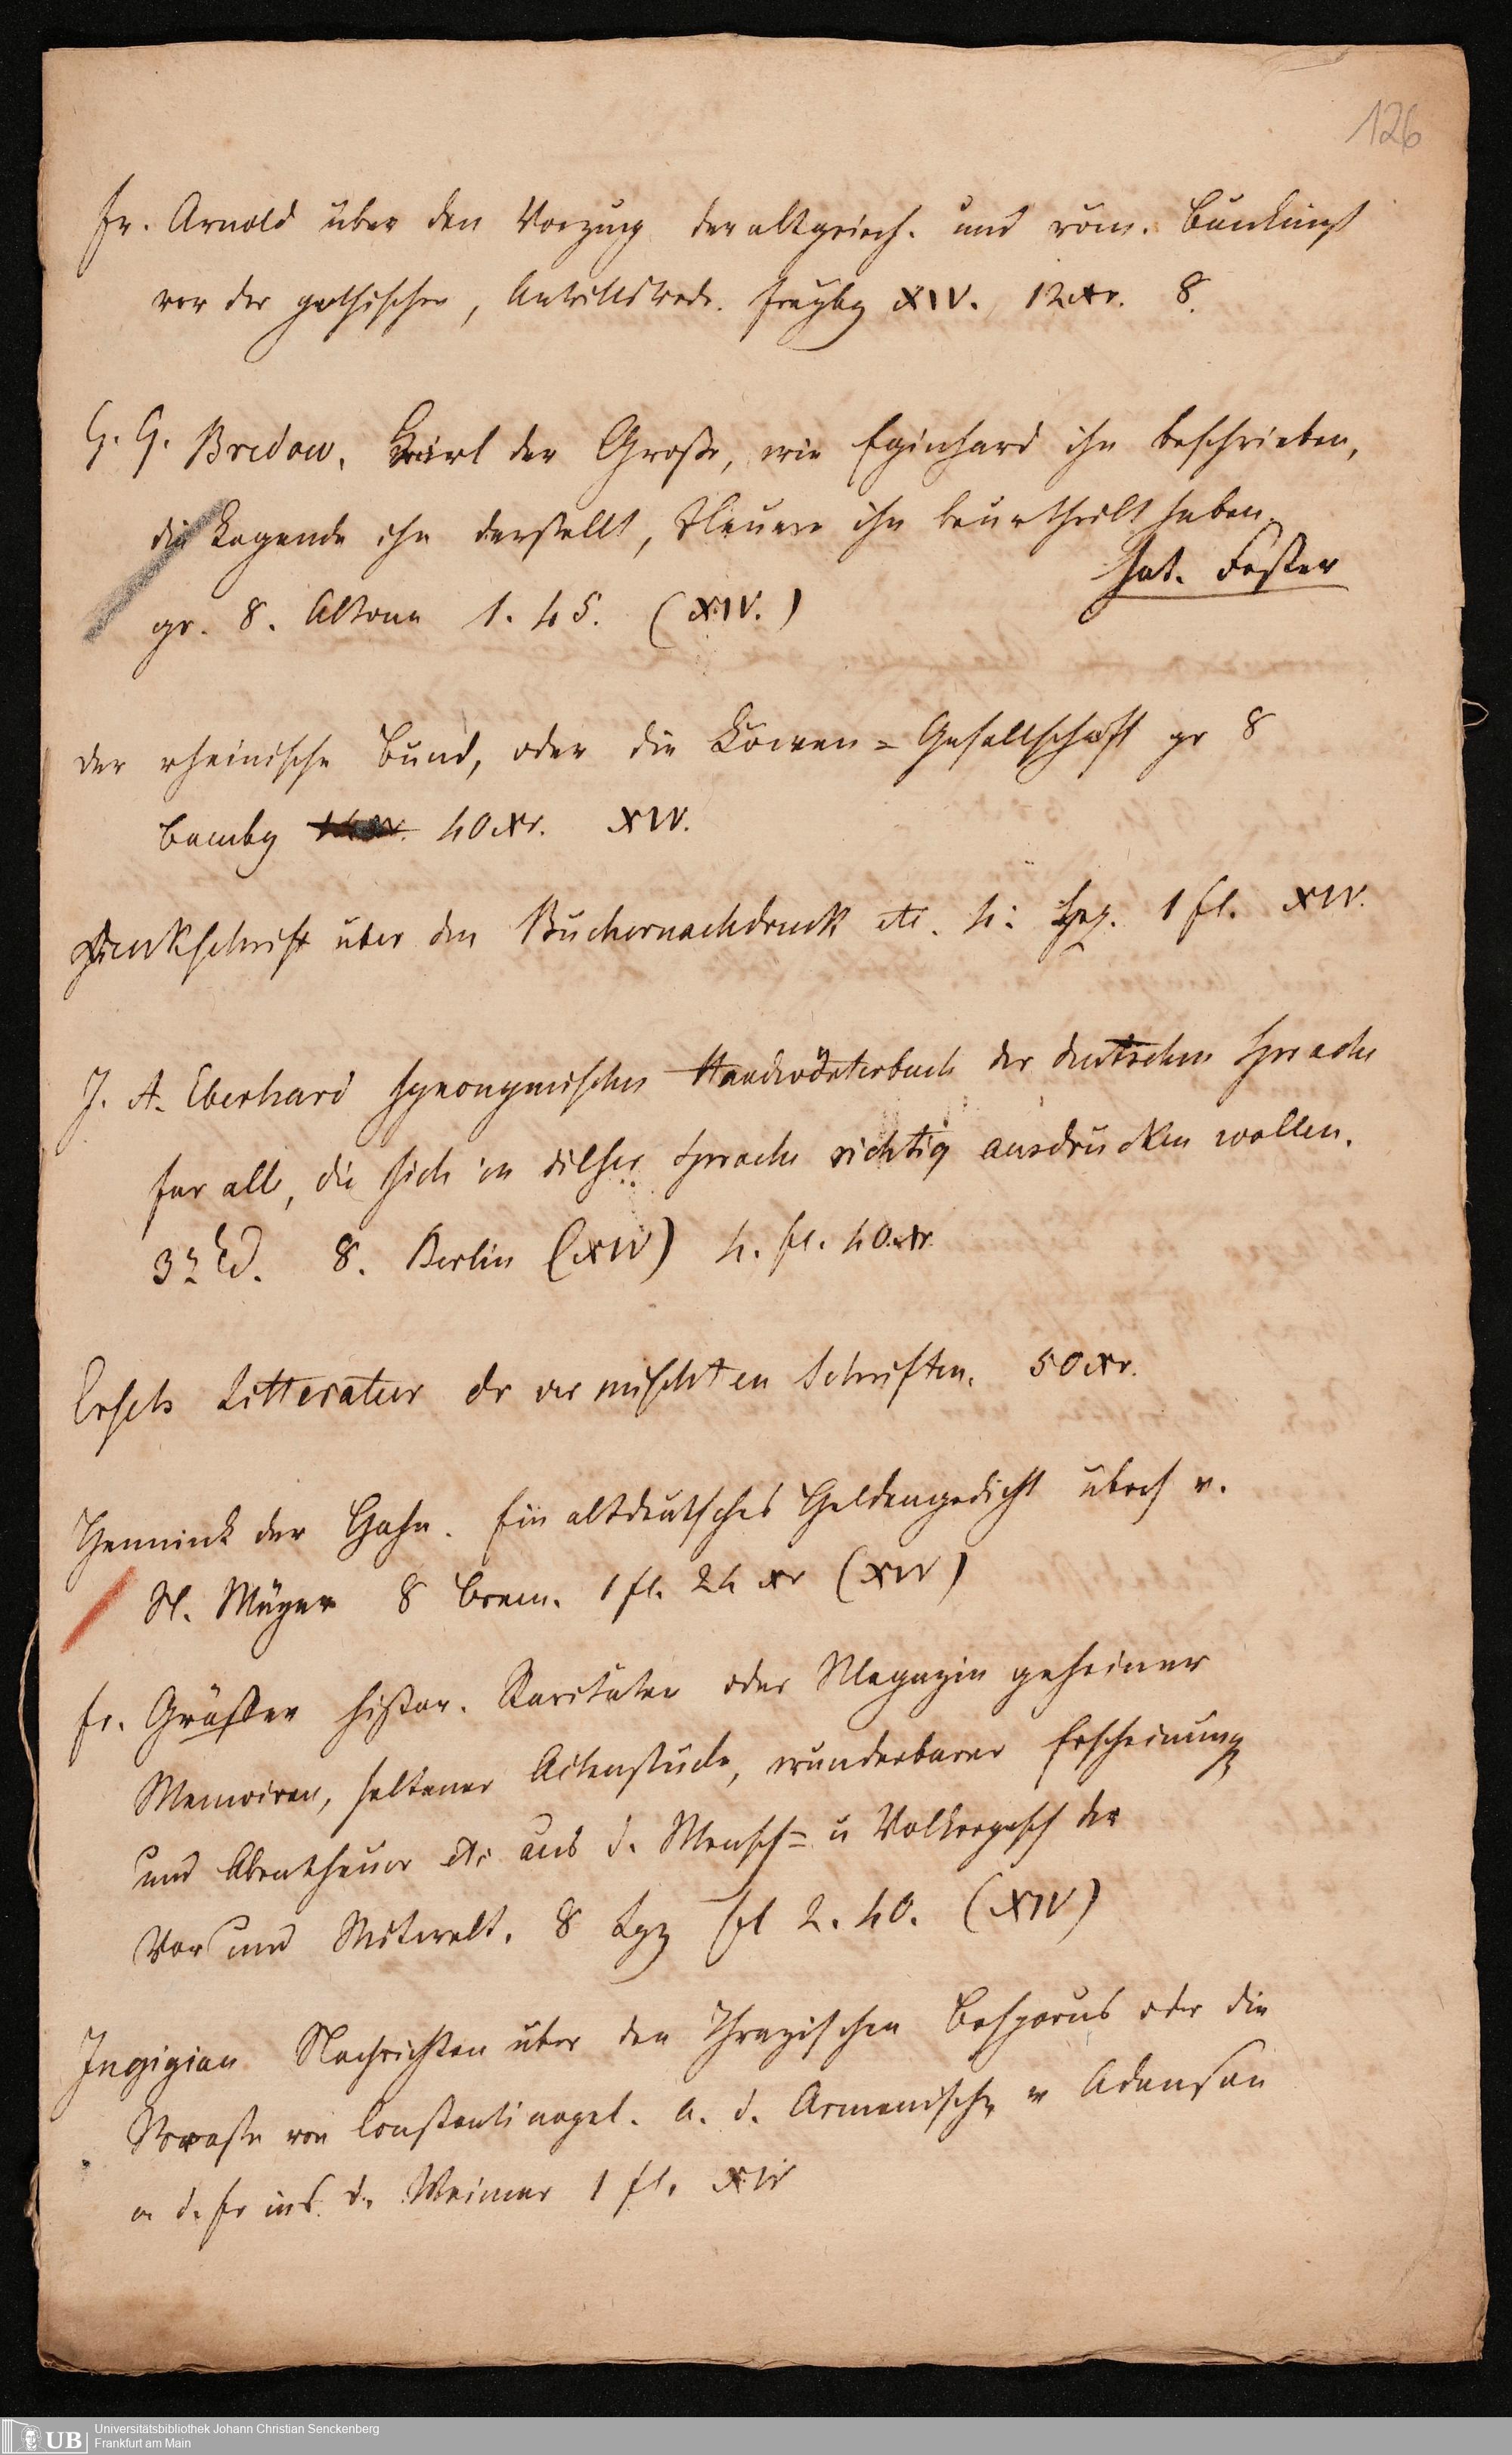 126
Fr. Arnold über den Vorzug der altgriech. und röm. Baukunst
vor der gothischen, Antrittsrede. Freybg XIV. 12 xr. 8.
G. G. Bredow. Karl der Große, wie Eginhard ihn beschrieben,
die Legende ihn darstellt, Neuere ihn beurtheilt haben
hat. Foster
gr. 8. Altona 1. 45. (XIV.)
der rheinische Bund, oder die Löwen-Gesellschaft gr 8
Bambg 40 xr. XIV.
Denkschrift über den Büchernachdruck etc. 4: Lpz. 1 fl. XIV.
J. A. Eberhard synonymisches Handwörterbuch der deutschen Sprache
für alle, die sich in dieser Sprache richtig ausdrücken wollen.
3e Ed. 8. Berlin (XIV) 4. fl. 40 xr
Ersch Litteratur dr vermischten Schriften. 50 xr.
Hennink der Hahn. Ein altdeutsches Heldengedicht übers v.
N. Meyer 8 Brem. 1 fl. 24 xr (XIV)
Fr. Gräffer histor. Raritäten oder Magazin geheimer
Memoiren, seltener Actenstücke, wunderbarer Erscheinung
und Abentheuer etc aus d. Mensch- u Völkergesch der
Vor und Mitwelt. 8 Lpz fl 2. 40. (XIV)
Ingigian Nachrichten über den Thrazischen Bosporus oder die
Strasse von Constantinopel. a. d. Armenischen v
a d. Fr ins d. Weimar 1 fl. XIV
UB
Universitätsbibliothek Johann Christian Senckenberg
Frankfurt am Main